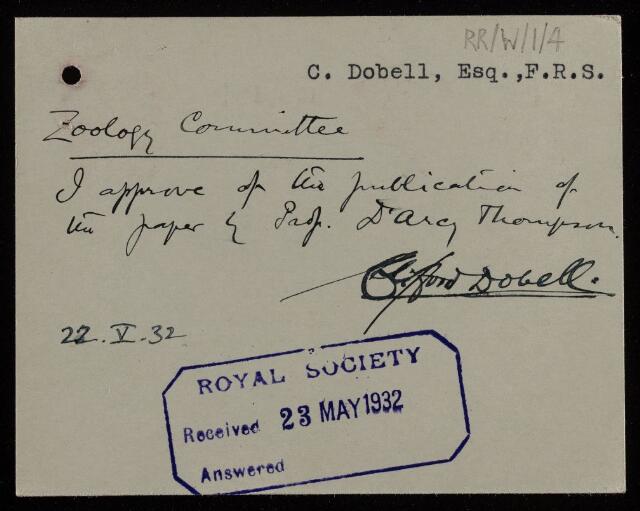 RR/W/1/4
C. Dobell, Esq.,F.R.S.
Zoology Committee
I approve of the publication of
the paper by Prof. D'Arcy Thompson.
Clifford Dobell.
22.V.32
ROYAL SOCIETY
Received 23 MAY 1932
Answered